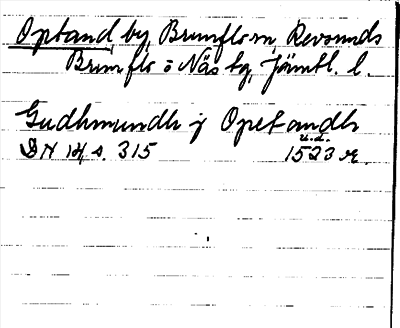 Optand by, Brunflo sn, Revsunds
Brunflo o Näs tg, Jämtl. l.
Gudhmundh j Opetandh
u.d.
DN 14 s. 315 1523 A.